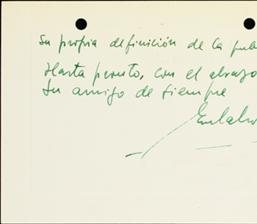 su propia definición de la
Hasta pronto, con el abrazo
tu amigo de siempre